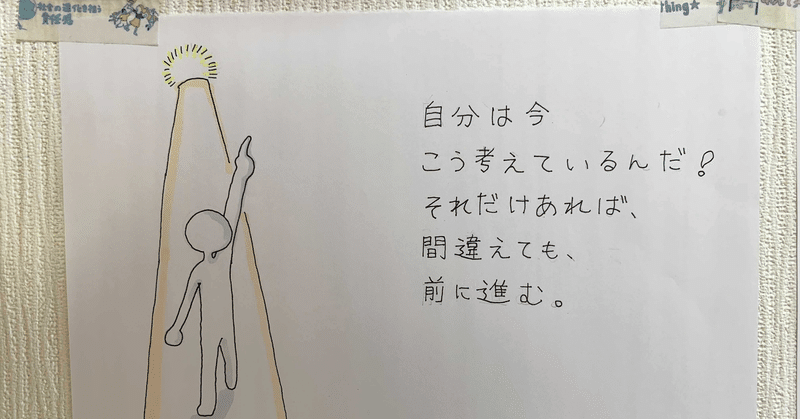 責任感
thing★
自分は今
こう考えているんだ!
それだけあれば、
間違えても、
前に進む。